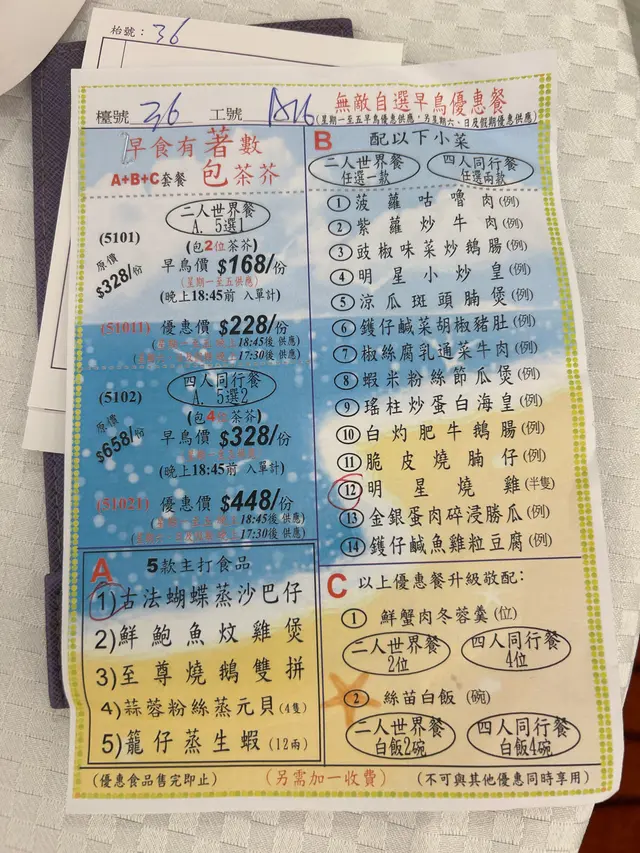 枱號：36
檯號 36 工號
無敵自選早鳥優惠餐
(星期一至五早鳥優惠供應，另星期六、日及假期優惠供應)
早食有著數
A+B+C套餐 包茶芥
二人世界餐
A. 5選1
(5101)
(包2位茶芥)
原價
$328/份
早鳥價 $168/份
(星期一至五供應)
(晚上18:45前 入單計)
(51011) 優惠價 $228/份
18:45後 供應)
17:30後 供應)
四人同行餐
A. 5選2
(5102)
(包4位茶芥)
原價
$658/份
早鳥價 $328/份
(晚上18:45前 入單計)
(51021) 優惠價 $448/份
18:45後 供應)
17:30後 供應)
A 5款主打食品
1)古法蝴蝶蒸沙巴仔
2)鮮鮑魚炆雞煲
3)至尊燒鵝雙拼
4)蒜蓉粉絲蒸元貝(4隻)
5)籠仔蒸生蝦(12兩)
B 配以下小菜
二人世界餐
任選一款
四人同行餐
任選兩款
1 菠蘿咕嚕肉(例)
2 紫蘿炒牛肉(例)
3 豉椒味菜炒鵝腸(例)
4 明星小炒皇(例)
5 涼瓜斑頭腩煲(例)
6 鑊仔鹹菜胡椒豬肚(例)
7 椒絲腐乳通菜牛肉(例)
8 蝦米粉絲節瓜煲(例)
9 瑤柱炒蛋白海皇(例)
10 白灼肥牛鵝腸(例)
11 脆皮燒腩仔(例)
12 明星燒雞(半隻)
13 金銀蛋肉碎浸勝瓜(例)
14 鑊仔鹹魚雞粒豆腐(例)
C 以上優惠餐升級敬配：
1 鮮蟹肉冬蓉羹(位)
二人世界餐
2位
四人同行餐
4位
2 絲苗白飯(碗)
二人世界餐
白飯2碗
四人同行餐
白飯4碗
(優惠食品售完即止) (另需加一收費) (不可與其他優惠同時享用)